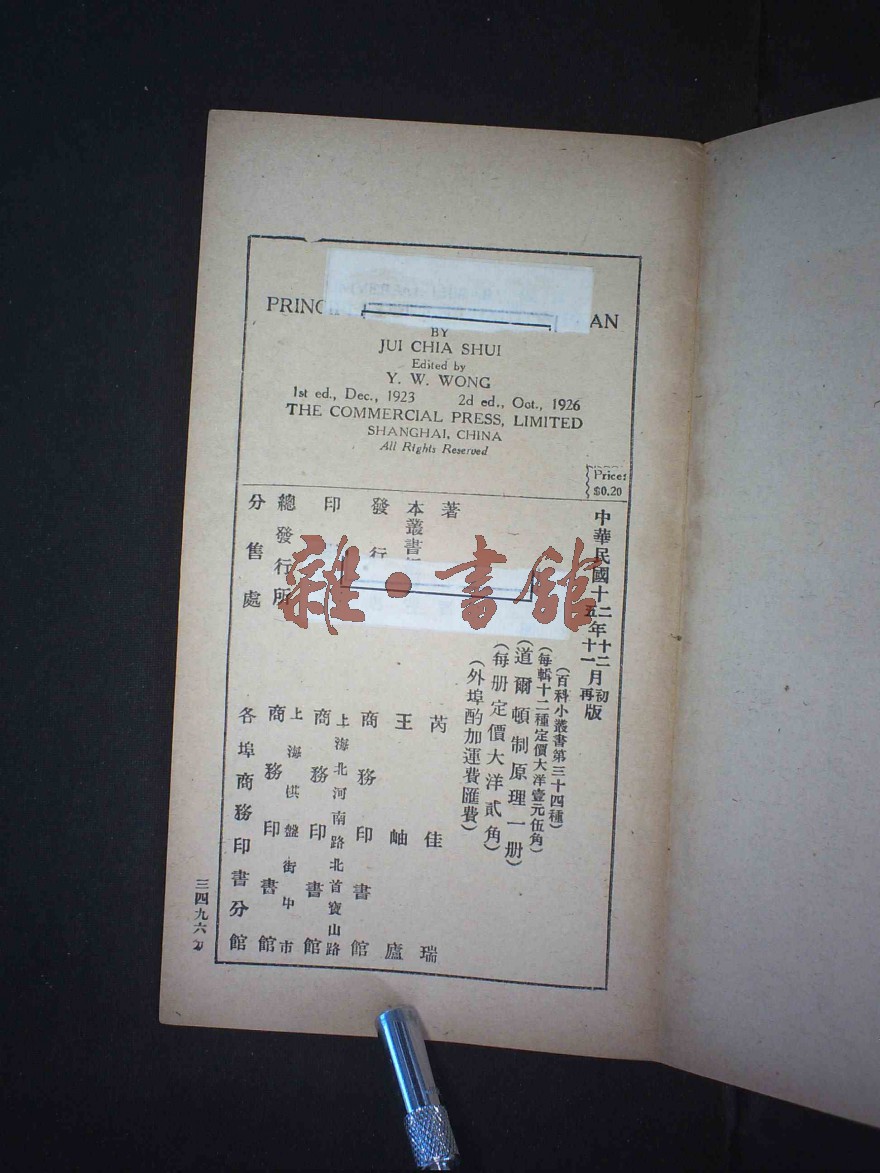 PRINC AN
BY
JUI CHIA SHUI
Edited by
Y. W. WONG
1st ed., Dec., 1923 2d ed., Oct., 1926
THE COMMERCIAL PRESS, LIMITED
SHANGHAI, CHINA
All Rights Reserved
Price:
$0.20
中華民國十二年十二月初版
十五年十一月再版
(百科小叢書第三十四種)
(每輯十二種定價大洋壹元伍角)
(道爾頓制原理一册)
(每册定價大洋貳角)
(外埠酌加運費匯費)
著 芮佳瑞
本叢書 王岫廬
發行 商務印書館
上海北河南路北首寶山路
印 商務印書館
上海棋盤街中市
總發行所 商務印書館
分售處 各埠商務印書分館
三四九六
雜·書館